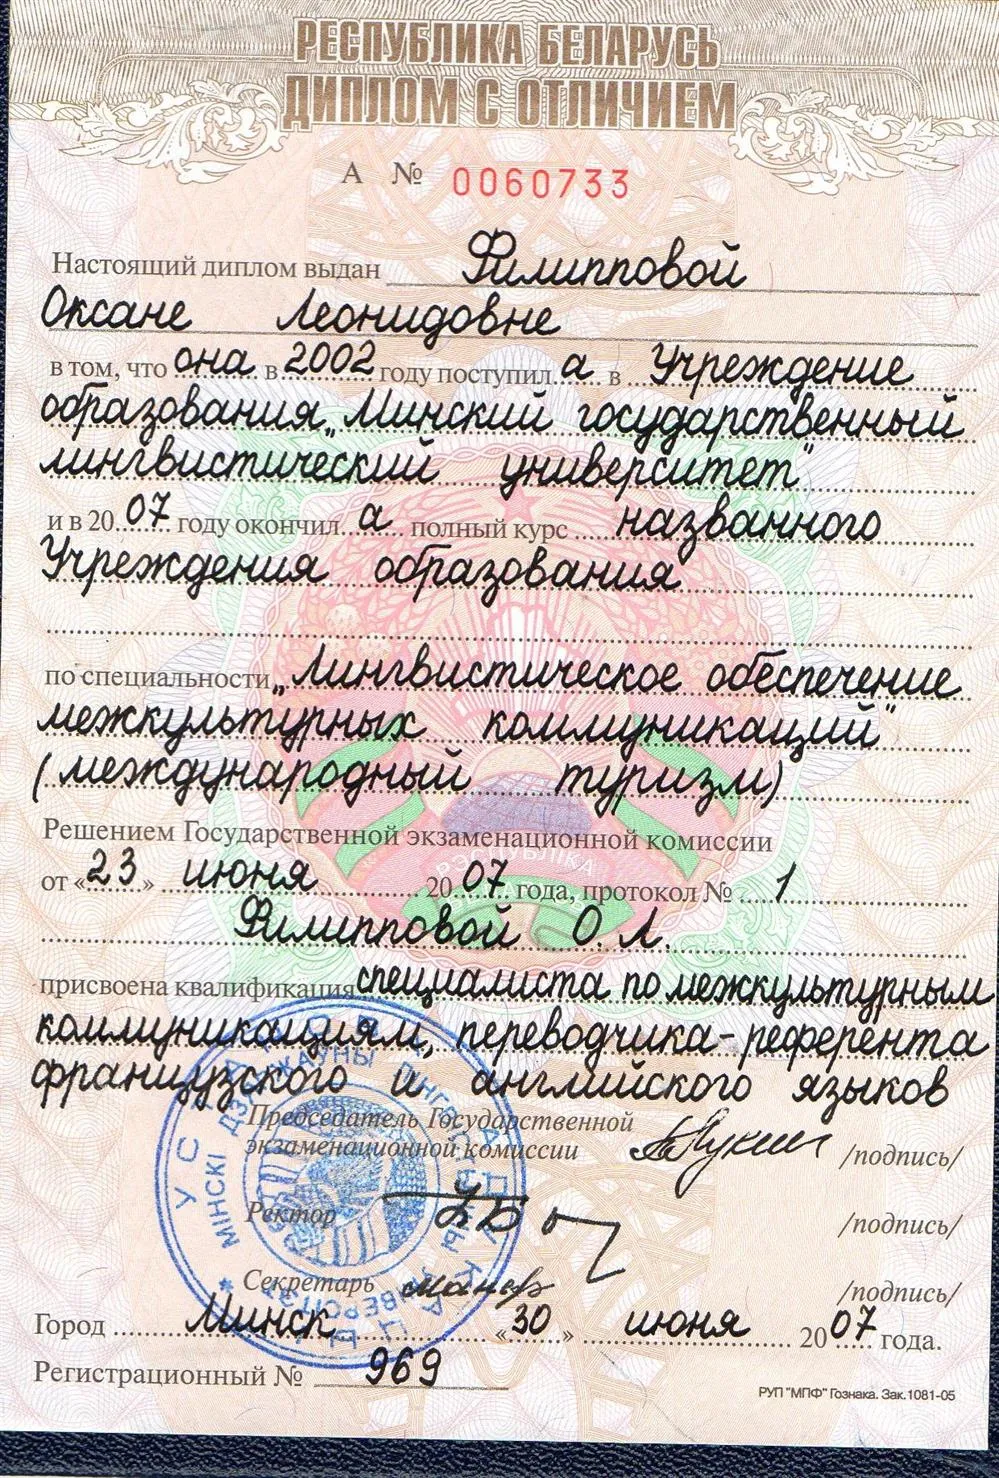 РЕСПУБЛИКА БЕЛАРУСЬ
ДИПЛОМ С ОТЛИЧИЕМ
А № 0060733
Настоящий диплом выдан Филипповой
Оксане Леонидовне
в том, что она в 2002 году поступил а в Учреждение
образования „Минский государственный
лингвистический университет"
и в 20 07 году окончил а полный курс названного
Учреждения образования
по специальности „Лингвистическое обеспечение
межкультурных коммуникаций"
(международный туризм)
РЭСПУБЛІКА
Решением Государственной экзаменационной комиссии
от «23» июня 20 07 года, протокол № 1
Филипповой О. Л.
присвоена квалификация специалиста по межкультурным
коммуникациям, переводчика-референта
французского и английского языков
Председатель Государственной
экзаменационной комиссии /подпись/
Ректор /подпись/
Секретарь /подпись/
МІНСКІ ДЗЯРЖАЎНЫ
Город Минск «30» июня 20 07 года.
Регистрационный № 969
РУП "МПФ" Гознака. Зак.1081-05